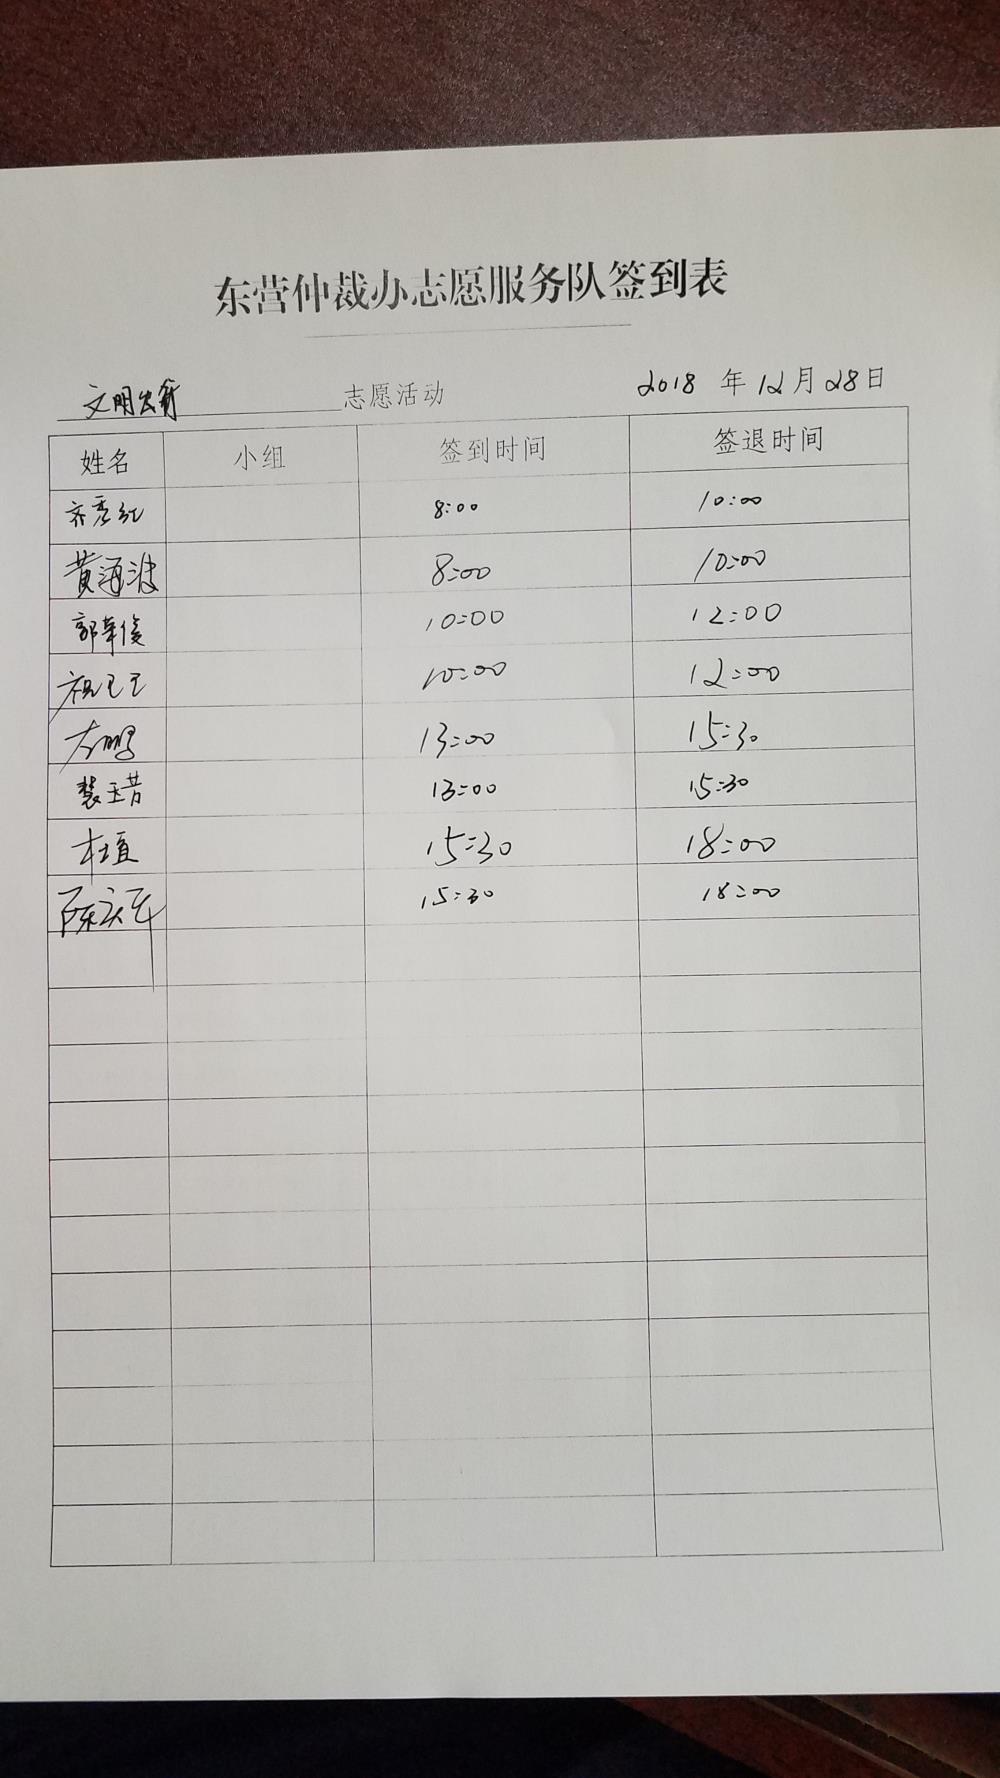 东营仲裁办志愿服务队签到表
文明出行 志愿活动 2018 年 12 月 28 日
姓名 小组 签到时间 签退时间
齐秀红 8:00 10:00
黄海波 8:00 10:00
郭华俊 10:00 12:00
祝 10:00 12:00
13:00 15:30
13:00 15:30
杜直 15:30 18:00
陈庆军 15:30 18:00